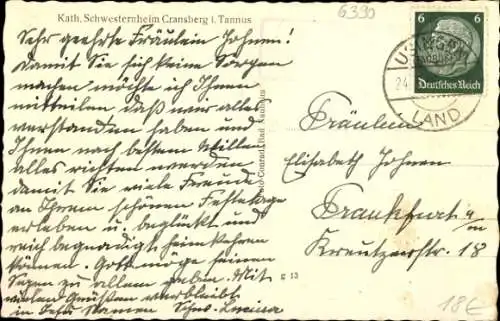 6390
Kath. Schwesternheim Cransberg i. Taunus
Sehr geehrte Fräulein Johnen!
Damit Sie sich keine Sorgen
machen möchte ich Ihnen
mitteilen daß wir alles
verstanden haben und
Ihnen nach bestem Willen
alles richten werden
damit Sie viele Freude
an Ihrem schönen Festtage
erleben u. beglückt und
reich begnadigt heimkehren
können. Gott möge seinen
Segen zu allem geben. Mit
vielen Grüßen verbleibt
in Jesu Namen Schw.
6 6
Deutsches Reich
USINGEN
24
LAND
Fräulein
Elisabeth Johnen
Frankfurt a/M
Kreutzerstr 18
g 13
18€